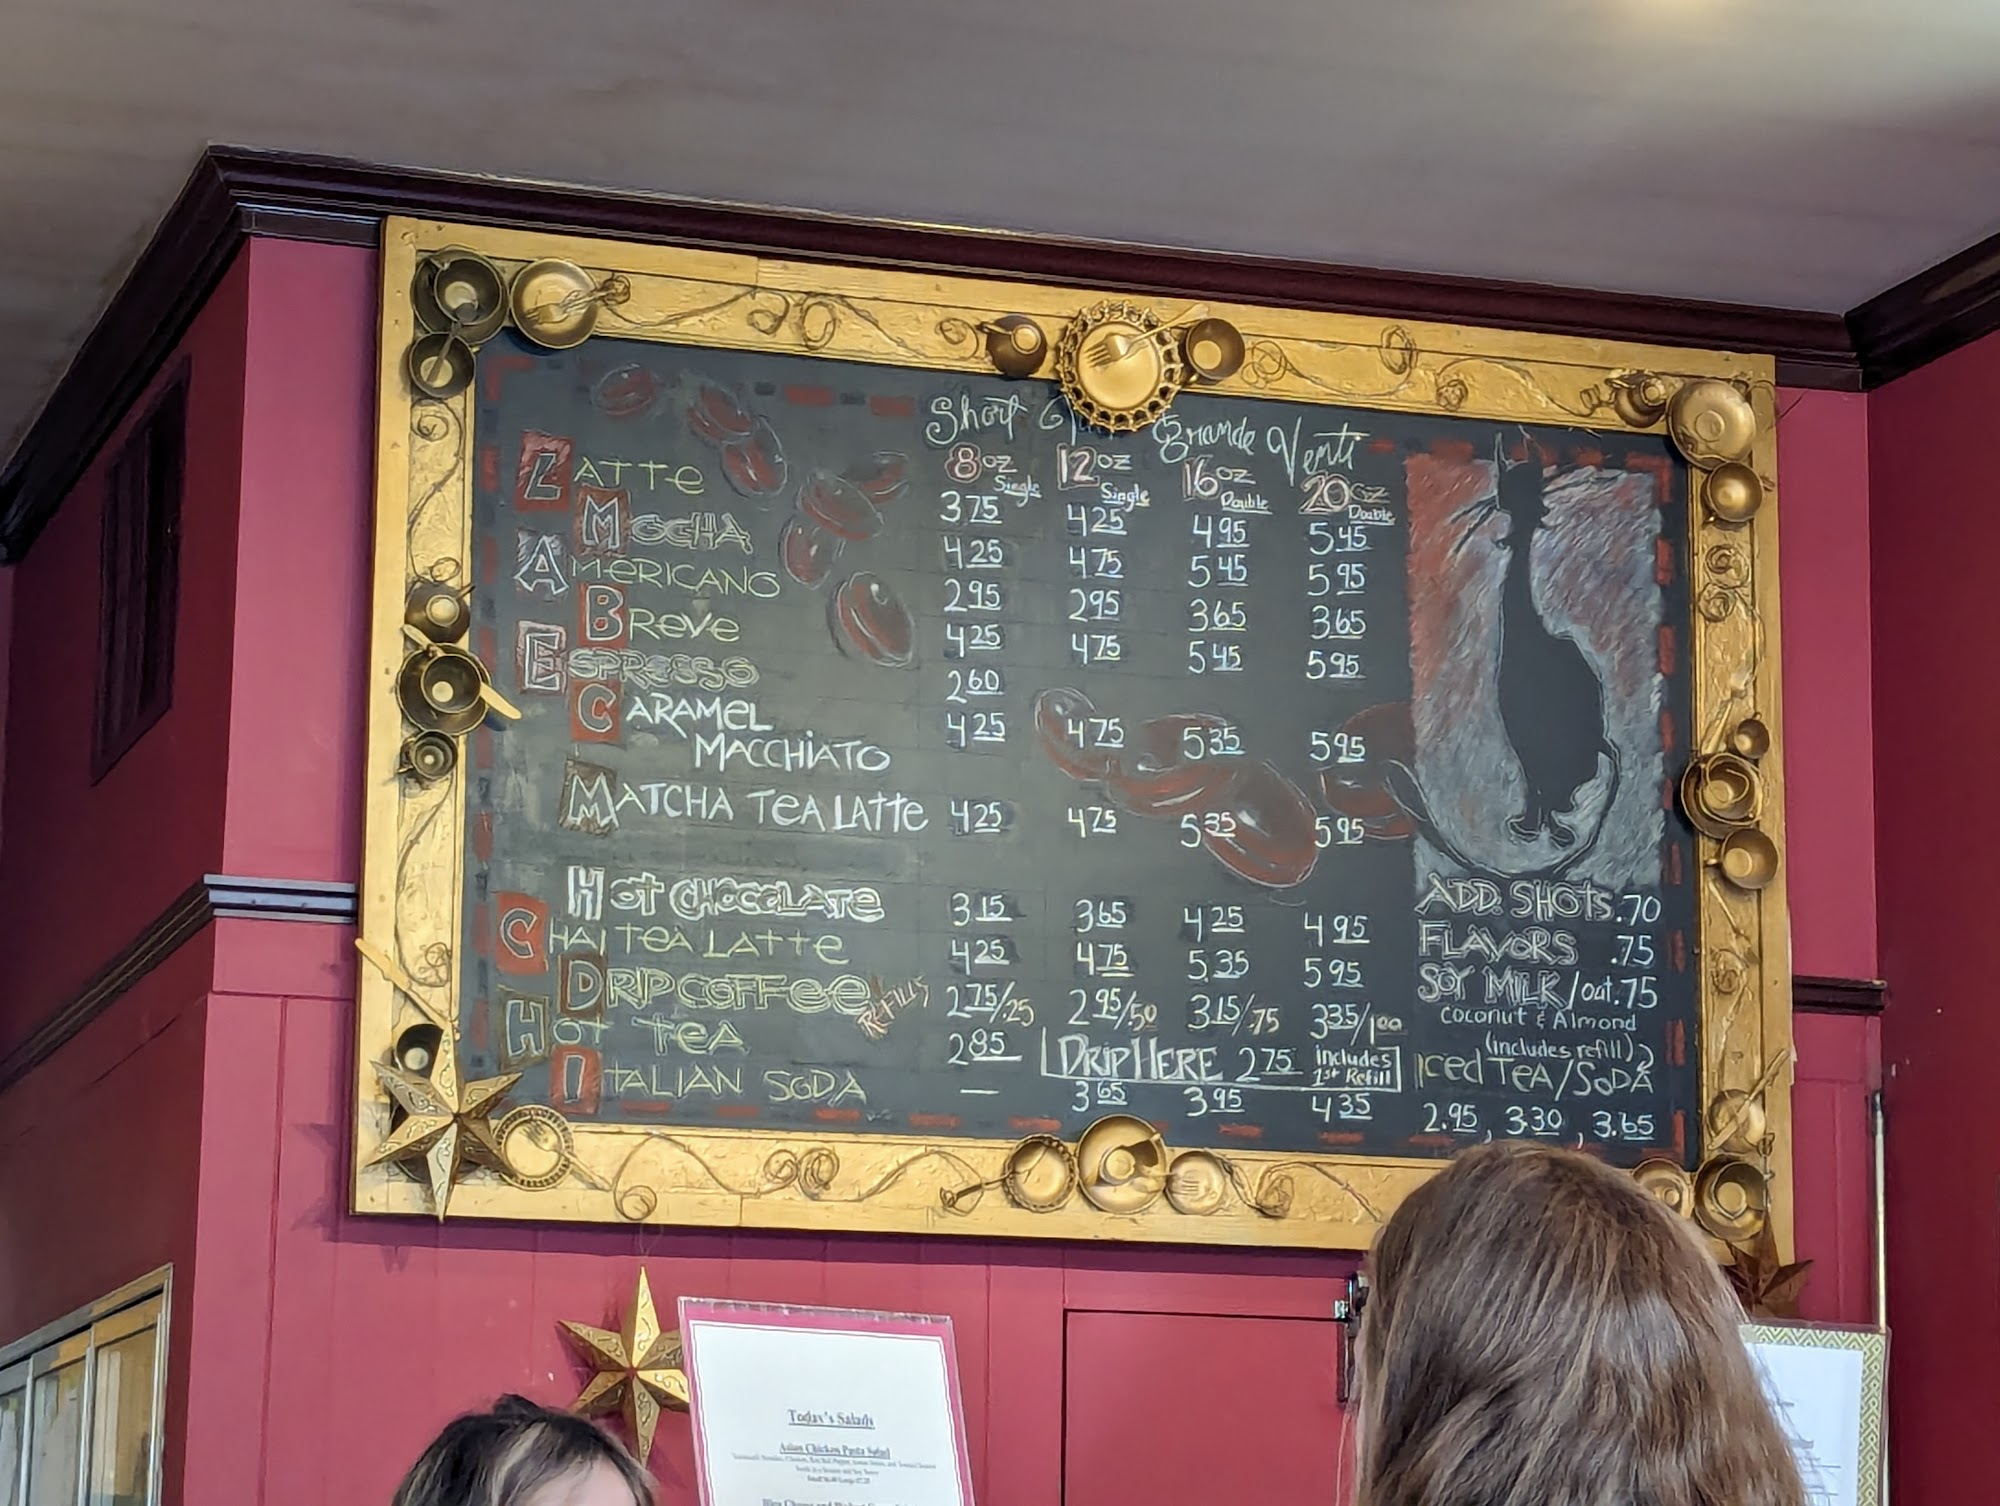 Short Grande Venti
8oz 12oz 16oz 20oz
Single Single Double Double
LATTE 3.75 4.25 4.95 5.45
MOCHA 4.25 4.75 5.45 5.95
AMERICANO 2.95 2.95 3.65 3.65
BREVE 4.25 4.75 5.45 5.95
ESPRESSO 2.60
CARAMEL
MACCHIATO 4.25 4.75 5.35 5.95
MATCHA TEA LATTE 4.25 4.75 5.35 5.95
HOT CHOCOLATE 3.15 3.65 4.25 4.95
CHAI TEA LATTE 4.25 4.75 5.35 5.95
DRIP COFFEE REFILLS 2.75/.25 2.95/.50 3.15/.75 3.35/1.00
HOT TEA 2.85
DRIP HERE 2.75 includes
1st Refill
ITALIAN SODA — 3.65 3.95 4.35
ADD. SHOTS .70
FLAVORS .75
SOY MILK/oat .75
coconut & Almond
(includes refill)
ICED TEA/SODA
2.95, 3.30, 3.65
Today's Salads
Asian Chicken Pasta Salad